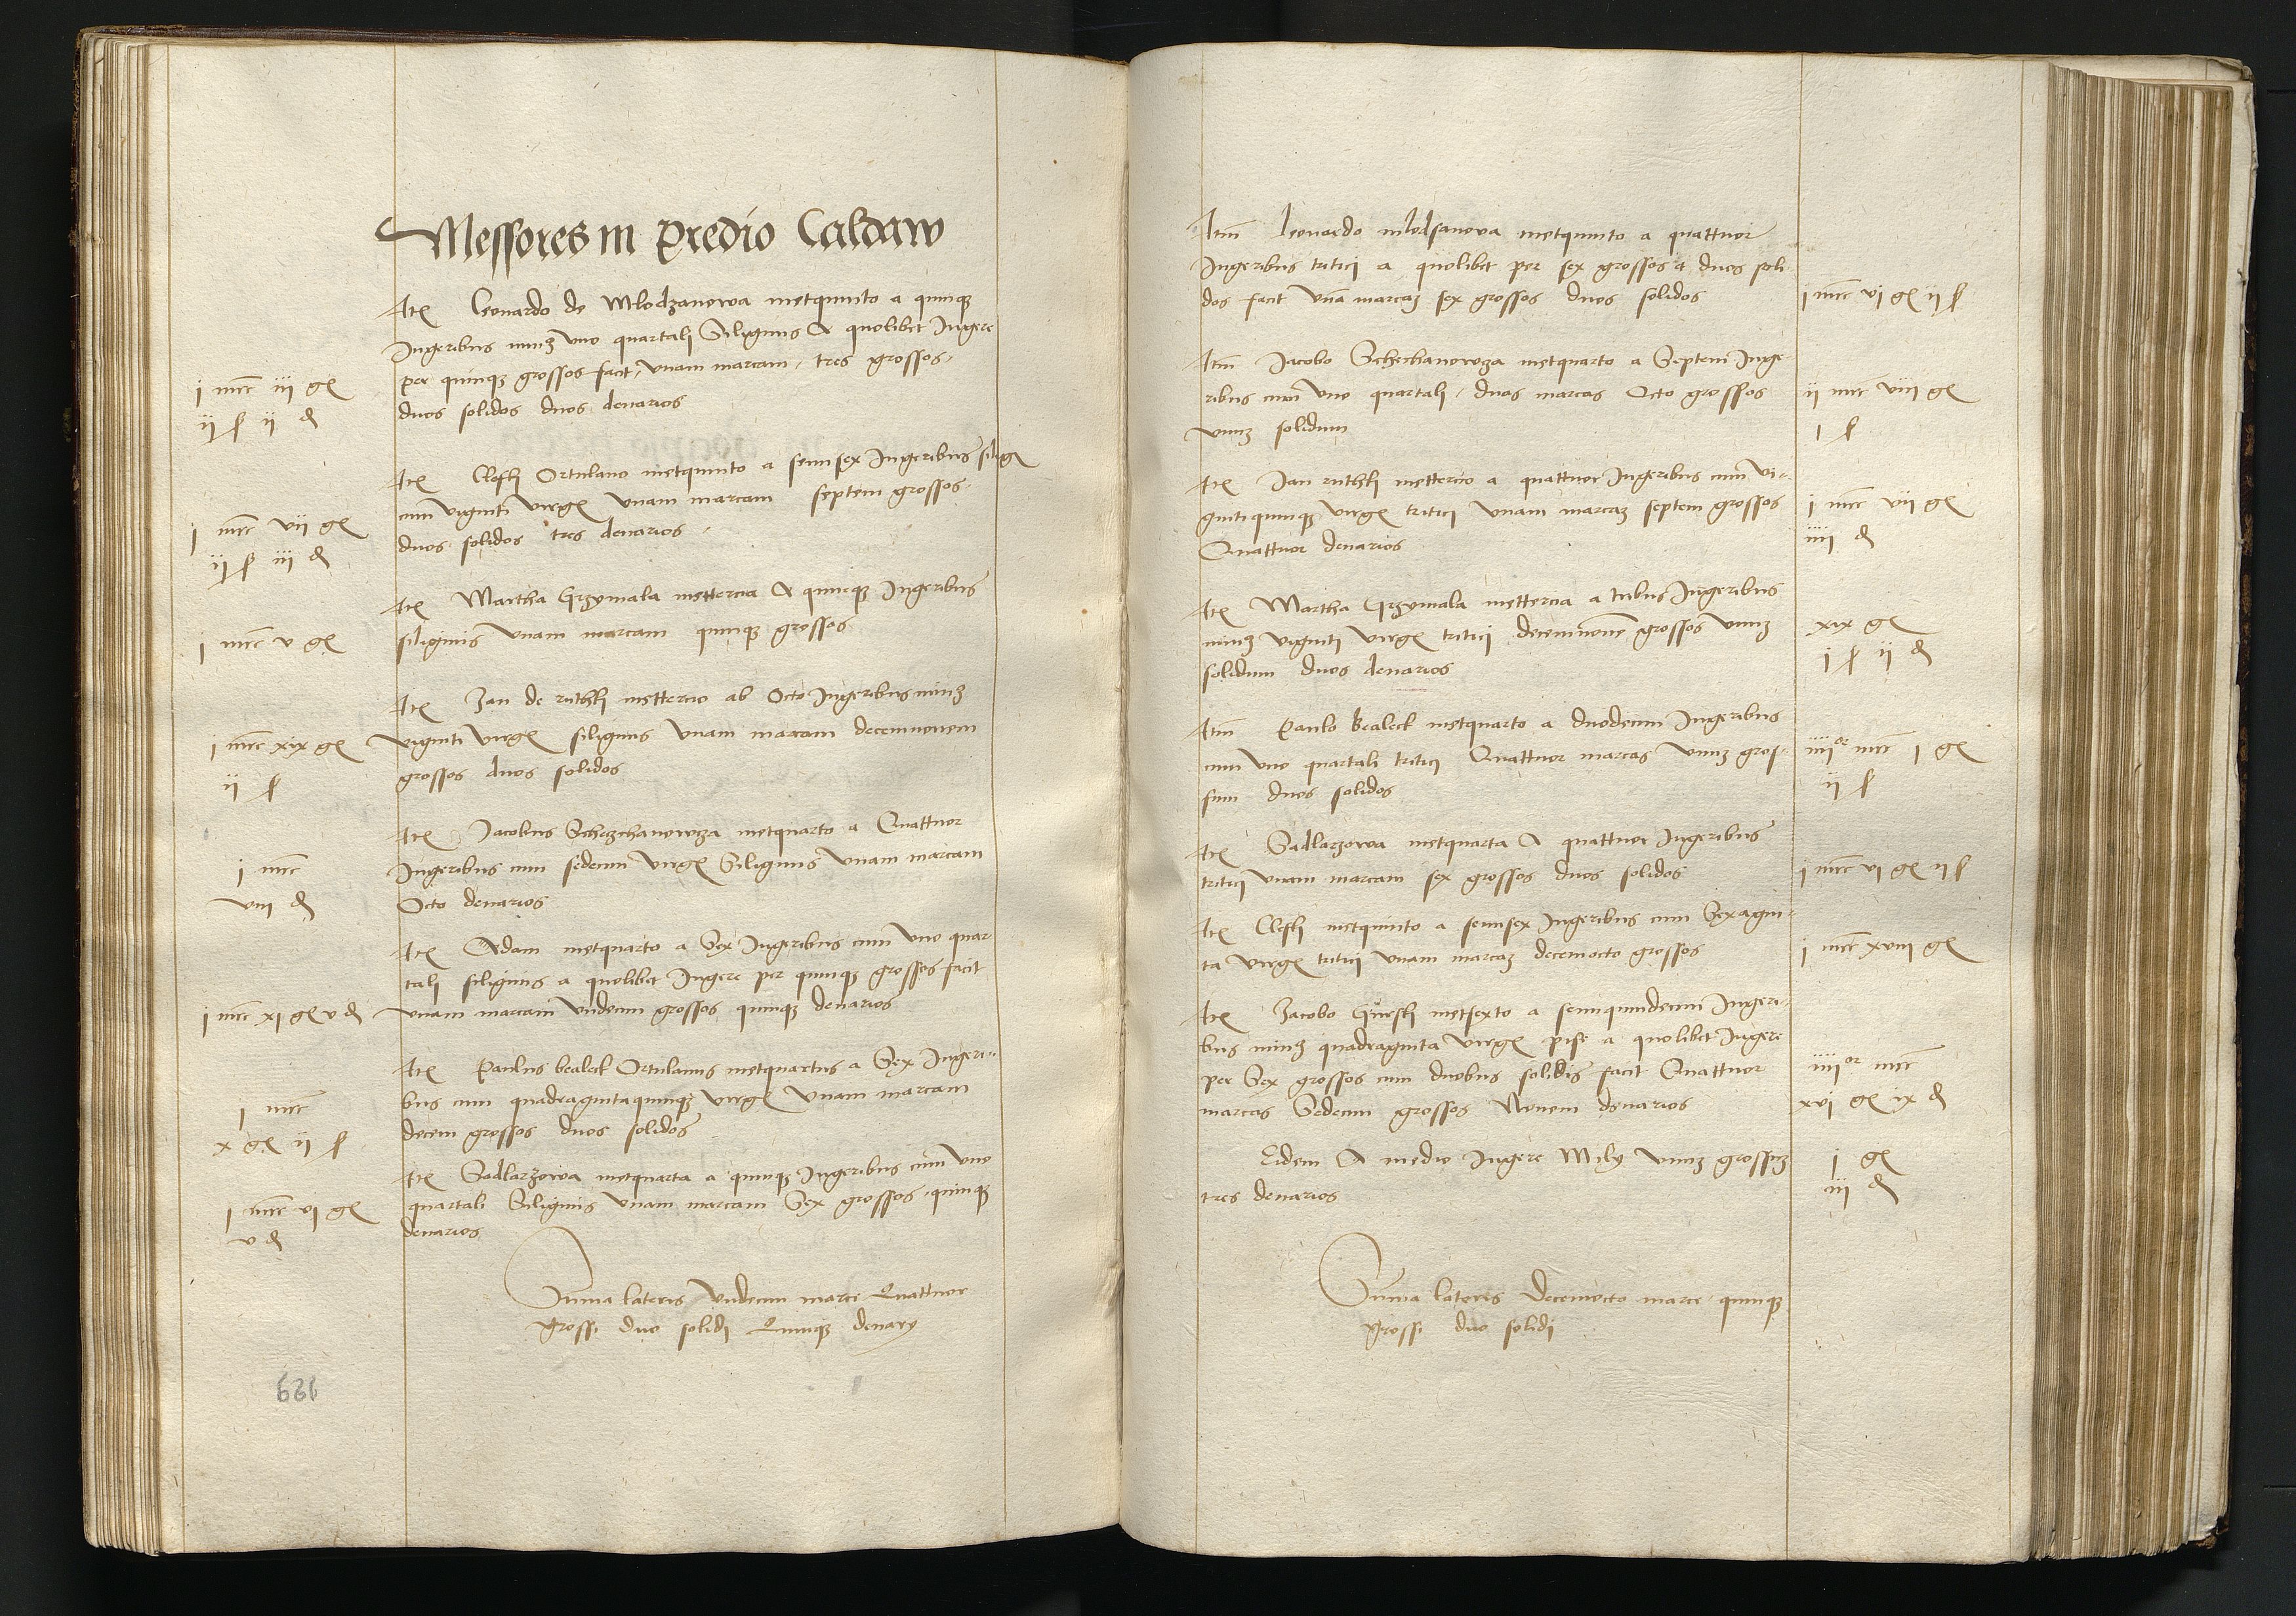 Messores in Predio Caldaw
Ite(m) Leonardo de Mlodzanowa metquinto a quinq(ue)
Jugeribus minus uno quartali Siliginis A quolibet Jugere
per quinq(ue) grossos facit, unam marcam, tres grossos,
duos solidos duos denarios
i mrc iii gs
ii s ii d
Ite(m) Clesch Ortulano metquinto a semisex Jugeribus silig(inis)
cum viginti virg(is) unam marcam septem grossos
duos solidos tres denarios
i mrc vii gs
ii s iii d
Ite(m) Martha Grzymala mettercia A quinq(ue) Jugeribus
siliginis unam marcam quinq(ue) grossos
i mrc v gs
Ite(m) Jan de ruthk mettercio ab Octo Jugeribus minus
viginti virg(is) siliginis unam marcam decemnovem
grossos duos solidos
i mrc xix gs
ii s
Ite(m) Jacobus metquarto a Quattuor
Jugeribus cum sedecim virg(is) Siliginis unam marcam
Octo denarios
i mrc
viii d
Ite(m) Adam metquarto a Sex Jugeribus cum uno quar
tali siliginis a quolibet Jugere per quinq(ue) grossos facit
unam marcam undecim grossos quinq(ue) denarios
i mrc xi gs v d
Ite(m) Paulus bealek Ortulanus metquartus a Sex Jugeri-
bus cum quadragintaquinq(ue) virg(is) unam marcam
decem grossos duos solidos
i mrc
x gs ii s
Ite(m) Sadlarzowa metquarta a quinq(ue) Jugeribus cum uno
quartali Siliginis unam marcam Sex grossos quinq(ue)
denarios
i mrc vi gs
v d
Summa lateris Undecim marce Quattuor
grossi duo solidi Quinq(ue) denarij
129
Itm Leonardo metquinto a quattuor
Jugeribus tritici a quolibet per sex grossos et duos soli
dos facit una(m) marcam sex grossos duos solidos
i mrc vi gs ii s
Itm Jacobo metquarto a Septem Juge
ribus cum uno quartali, duas marcas Octo grossos
unum solidum
ii mrc viii gs
i s
Ite(m) Jan ruthk mettercio a quattuor Jugeribus cum vi-
gintiquinq(ue) virg(is) tritici unam marcam septem grossos
Quattuor denarios
i mrc vii gs
iiii d
Ite(m) Martha Grzymala mettercia a tribus Jugeribus
minus viginti virg(is) tritici decemnove(m) grossos unum
solidum duos denarios
xix gs
i s ii d
Itm Paulo bealek metquarto a duodecim Jugeribus
cum uno quartali tritici Quattuor marcas unum gros-
sum duos solidos
iiii or mrc i gs
ii s
Ite(m) Sadlarzowa metquarta A quattuor Jugeribus
tritici unam marcam sex grossos duos solidos
i mrc vi gs ii s
Ite(m) Clesch metquinto a semisex Jugeribus cum Sexagin-
ta virg(is) tritici unam marcam decemocto grossos
i mrc xviii gs
Ite(m) Jacobo Gursk metsexto a semiquindecim Jugeri-
bus minus quadraginta virg(is) pise a quolibet Jugere
per Sex grossos cum duobus solidis facit Quattuor
marcas Sedecim grossos Novem denarios
iiii or mrc
xvi gs ix d
Eidem A medio Jugere Milij unum grossum
tres denarios
i gs
iii d
Summa lateris decemocto marce quinq(ue)
grossi duo solidi